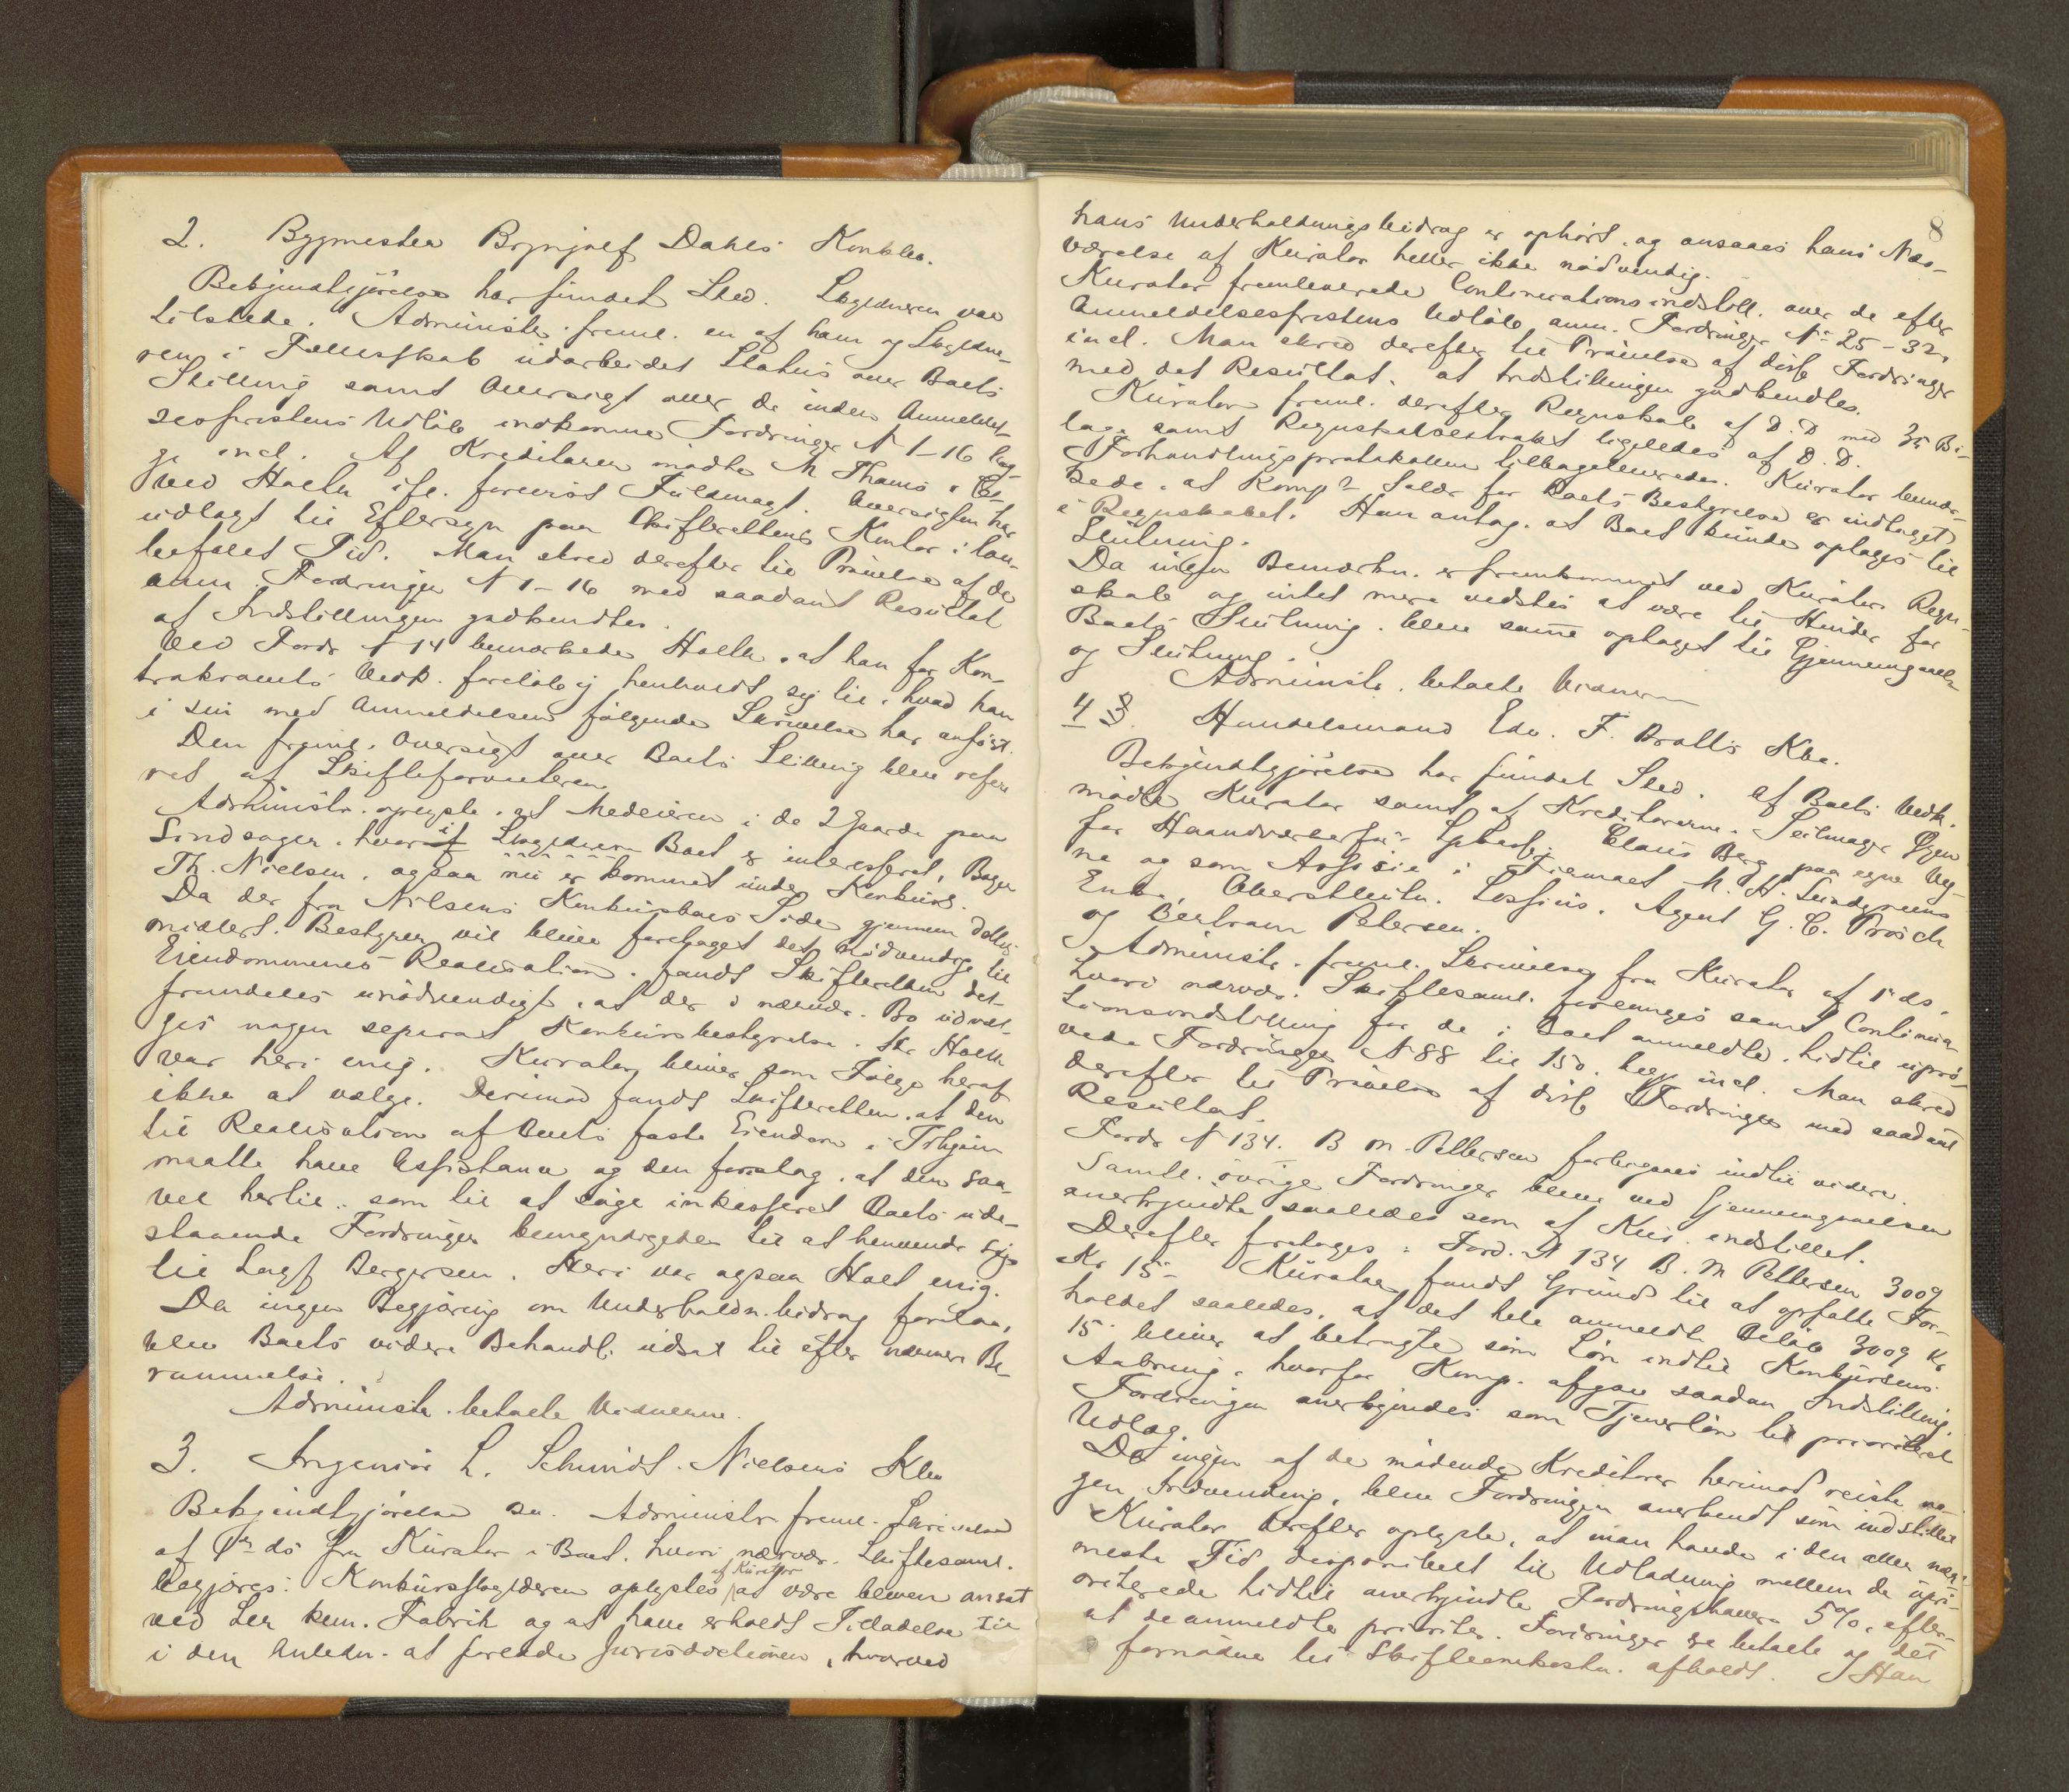 2. Bygmester Brynjulf Dahls Konkbo.
Bekjendtgjørelse har fundet Sted. Skyldneren var
tilstede. Administr. freml. en af ham og Skyldne-
ren i Fællesskab udarbeidet Status over Boets
Stilling samt Oversigt over de inden Anmeldel-
sesfristens Udløb indkomne Fordringer N 1-16 beg-
ge incl. Af Kreditorer mødte M Thams v
ved Holth ifl. forevist Fuldmagt. Oversigten har
udlagt til Eftersyn paa Skifterettens Kontor i lov-
befalet Tid. Man skred derefter til Prøvelse af de
anm. Fordringer N 1-16 med saadant Resultat
at Indstillingen godkendtes.
Ved Fordr N 14 bemærkede Holth, at han for Kon-
trakraents Vedk. foreløbig henholdt sig til, hvad han
i sin med Anmeldelsen følgende Skrivelse har anført.
Den freml. Oversigt over Boets Stilling blev refere
ret af Skifteforvalteren
Administr. oplyste, at Medeieren i de 2 Gaarde paa
Sindsager, hvori Skyldneren Boet er interesseret, Bager
Th. Nielsen, ogsaa nu er kommet under Konkurs.
Da der fra Nilsens Konkursboes Side gjennem dettes
midlert. Bestyrer vil blive foretaget det nødvendige til
Eiendommenes Realisation, fandt Skifteretten det
fremdeles unødvendigt, at der i nærvær. Bo udvæl-
ges nogen separat Konkursbestyrelse. Hr Holth
var heri enig. Kurator bliver som Følge heraf
ikke at vælge. Derimod fandt Skifteretten, at den
til Realisation af Boets faste Eiendom i Trhjem
maatte have Assistance og den foreslog, at den saa-
vel hertil, som til at søge inkasseret Boets ude-
staaende Fordringer bemyndigedes til at henvende sig
til Sagf Bergersen. Heri var ogsaa Holt enig.
Da ingen Begjæring om Underholdn.bidrag forelaa,
blev Boets videre Behandl. udsat til efter nærmere Be-
rammelse.
Administr. betalte Vidnerne.
3. Ingeniør L. Schmidt-Nielsens Kbo
Bekjendtgjørelse sn. Administr. freml. Skrivelse
af ds fra Kurator i Boet, hvori nærvær. Skiftesaml.
begjæres. Konkursskyldneren oplystes af Kurator at være bleven ansat
ved Ler kem. Fabrik og at have erholdt Tilladelse til
i den Anledn. at forlade Jurisdictionen, hvorved
8
hans Underholdningsbidrag er ophørt, og ansaaes hans Nær-
værelse af Kurator heller ikke nødvendig.
Kurator fremleverede Continuationsindstill. over de efter
Anmeldelsesfristens Udløb anm. Fordringer No 25-32,
incl. Man skred derefter til Prøvelse af disse Fordringer
med det Resultat, at Indstillingen godkendtes.
Kurator freml. derefter Regnskab af D.D med 35 Bi-
lag samt Regnskabsextrakt ligeledes af D.D.
Forhandlingsprotokollen tilbageleveredes. Kurator bemær-
kede, at Komp Salær for Boets Bestyrelse er indtaget
i Regnskabet. Han antog, at Boet kunde optages til
Slutning.
Da ingen Bemærkn. er fremkommet ved Kurators Regn-
skab og intet mere vidstes at være til Hinder for
Boets Slutning, blev samme optaget til Gjennemgaaelse
og Slutning.
Administr. betalte Vidnerne
4 3. Handelsmand Edv. F. Bratts Kbo.
Bekjendtgjørelse har fundet Sted. Af Boets Vedk.
mødte Kurator samt af Kreditorerne, Seilmager Øyen
for Haandværkerfor Spbank, Claus Berg paa egne Veg-
ne og som Associe i Firmaet M. H. Lundgreens
Enke, Oberstløitn. Lossius, Agent G. C. Prøsch
og Bertram Petersen.
Administr. freml. Skrivelse fra Kurator af 1' ds,
hvori nærvær. Skiftesaml. forlanges samt Continua-
tionsindstilling for de i Boet anmeldte, hidtil uprø-
vede Fordringer N 88 til 150, begge incl. Man skred
derefter til Prøvelse af disse Fordringer med saadant
Resultat.
Fordr N 134. B M. Pettersen forbigaaes indtil videre.
Samtl. øvrige Fordringer blev ved Gjennemgaaelsen
anerkjendte saaledes som af Kur. indstillet.
Derefter foretages: Ford. N 134 B. M Pettersen 3009
Kr 15- Kurator fandt Grund til at opfatte For-
holdet saaledes, at det hele anmeldte Beløb 3009 Kr
15 bliver at betragte som Løn indtil Konkursens
Aabning, hvorfor Komp. afgav saadan Indstilling,
Fordringen anerkjendes som Tjenerløn til prioriteret
Udlæg.
Da ingen af de mødende Kreditorer herimod reiste no-
gen Indvending, blev Fordringen anerkendt som indstillet
Kurator derefter oplyste, at man havde i den aller nær-
meste Tid disponibelt til Udlodning mellem de upri-
oriterede hidtil anerkjendte Fordringshavere 5%, efter
at de anmeldte priorite. Fordringer er betalte og det
fornødne til Skifteomkostn. afholdt. Han